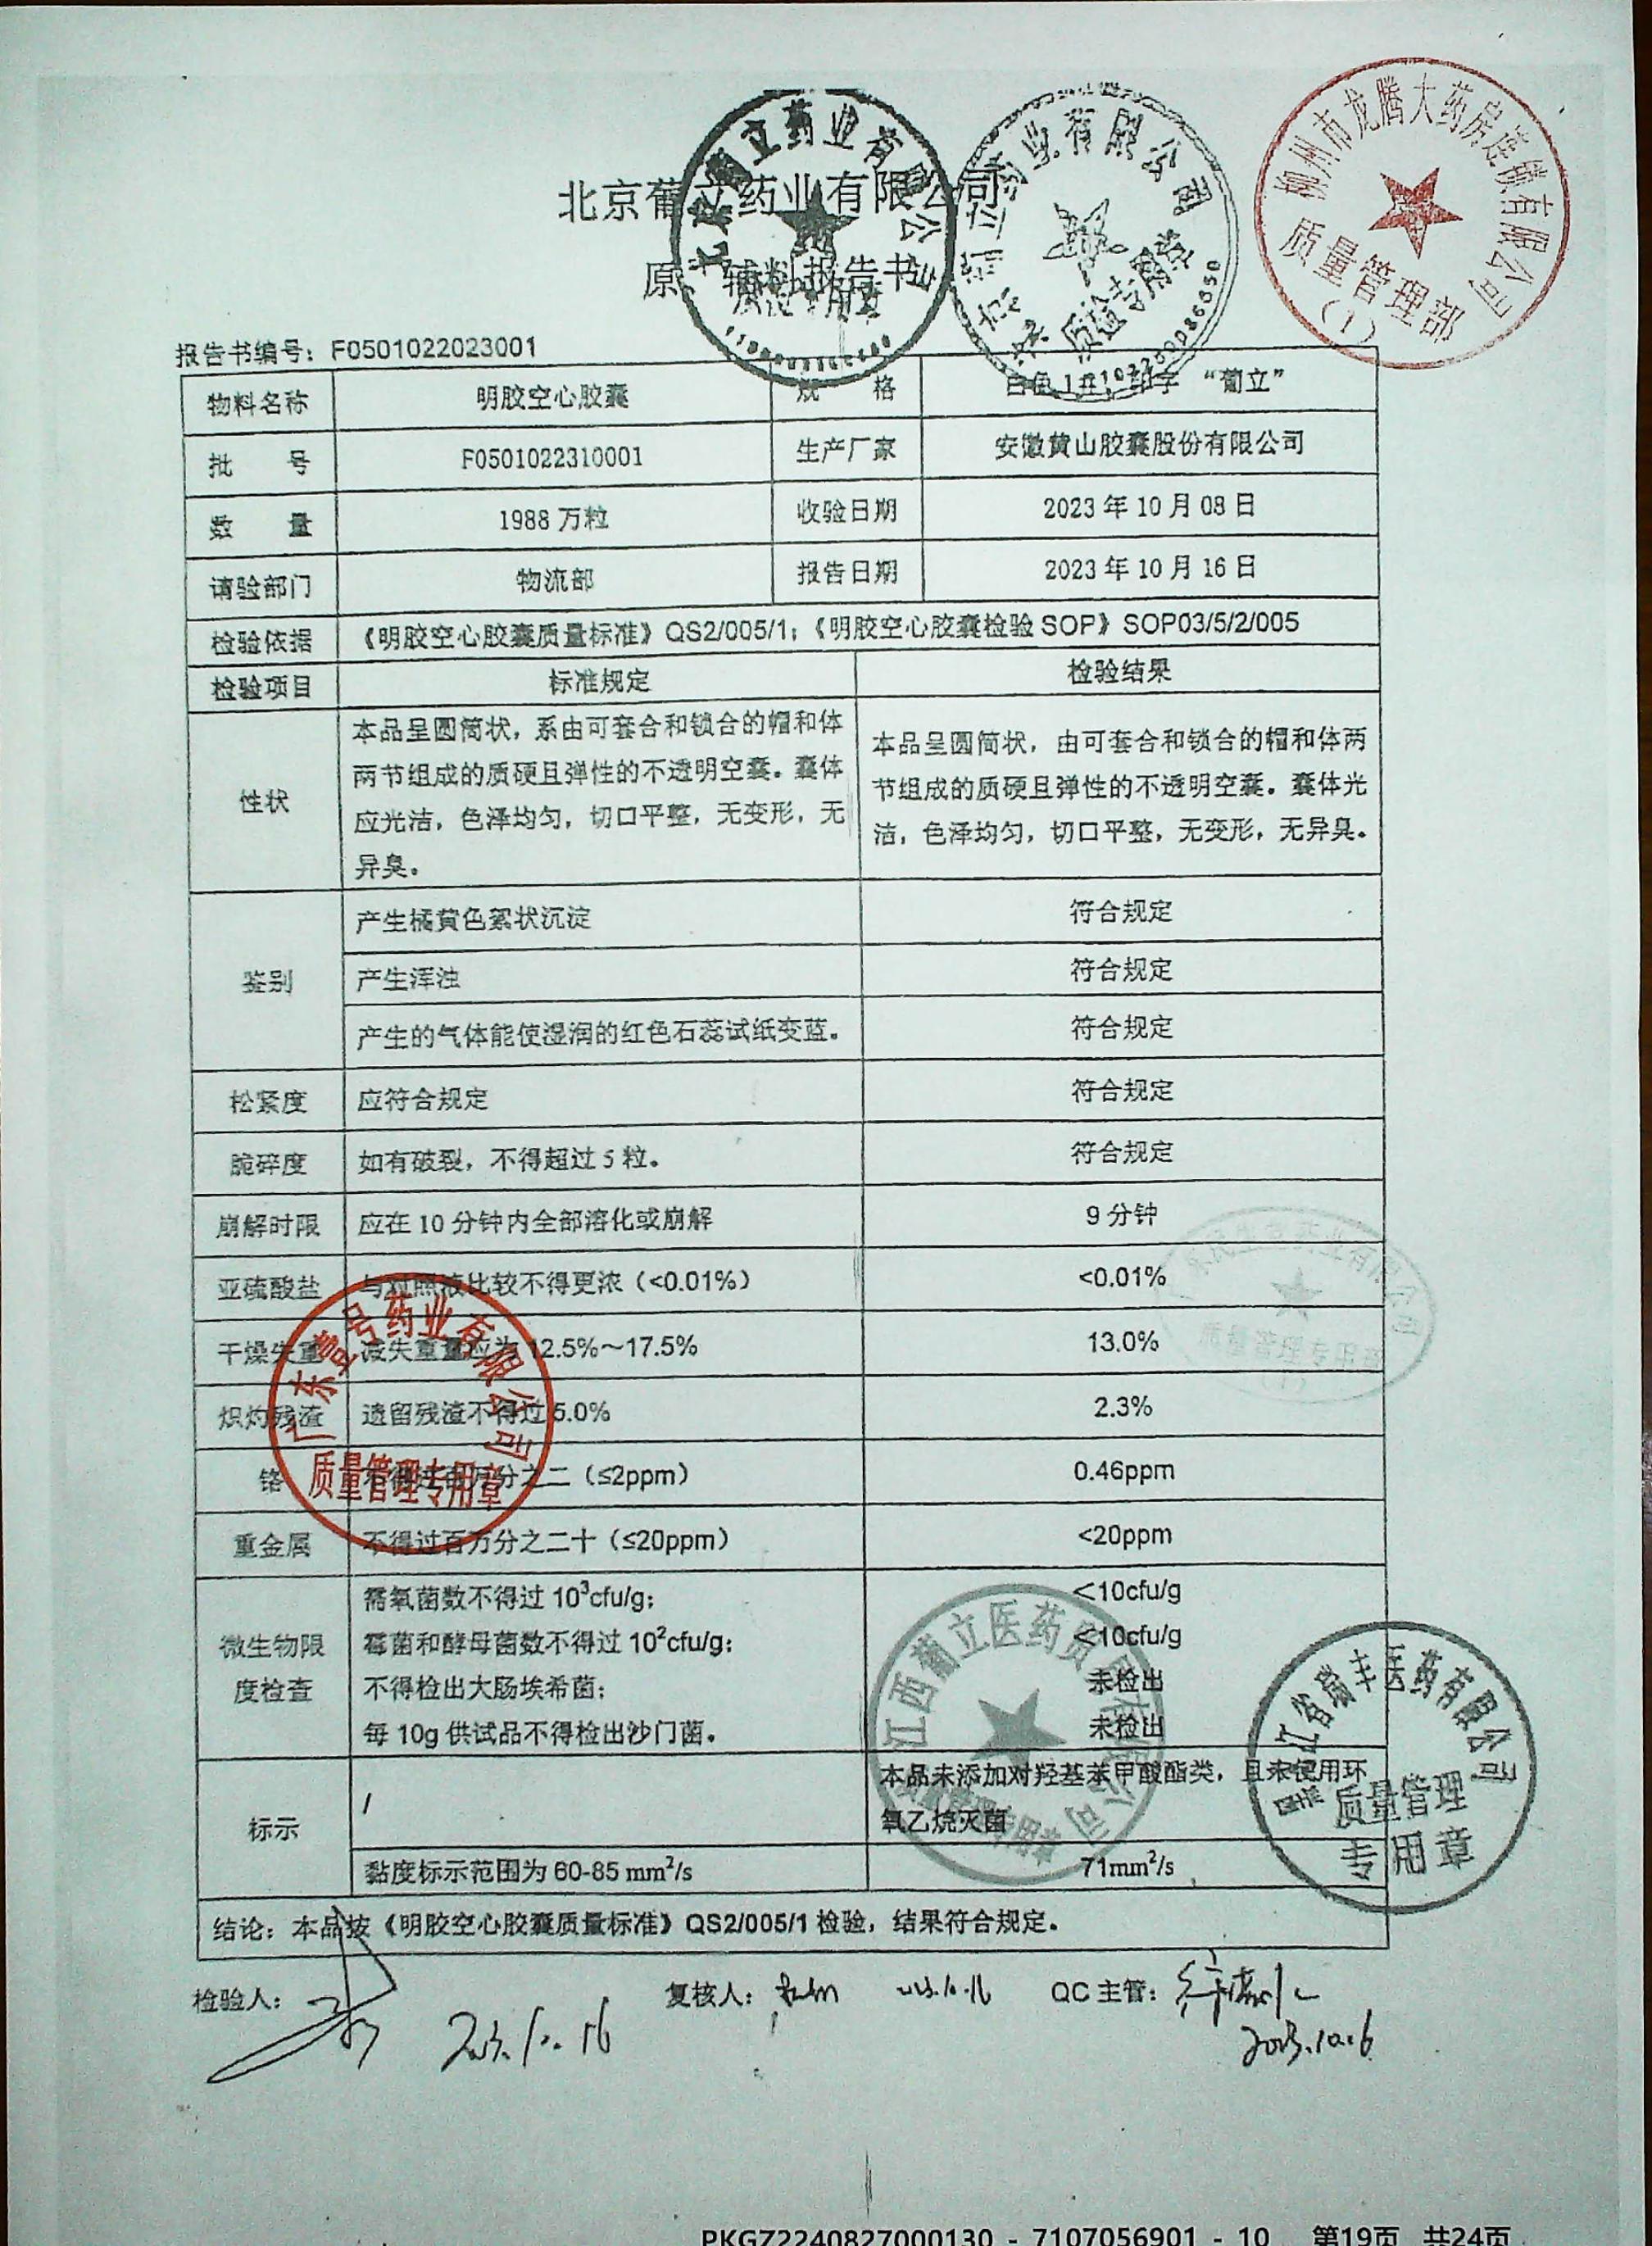 北京葡立药业有限公司
原、辅料报告书
报告书编号：F0501022023001
物料名称 明胶空心胶囊 规 格 白色1#，印字 “葡立”
批 号 F0501022310001 生产厂家 安徽黄山胶囊股份有限公司
数 量 1988 万粒 收验日期 2023 年 10 月 08 日
请验部门 物流部 报告日期 2023 年 10 月 16 日
检验依据 《明胶空心胶囊质量标准》QS2/005/1；《明胶空心胶囊检验 SOP》SOP03/5/2/005
检验项目 标准规定 检验结果
性状
本品呈圆筒状，系由可套合和锁合的帽和体
两节组成的质硬且弹性的不透明空囊。囊体
应光洁，色泽均匀，切口平整，无变形，无
异臭。
本品呈圆筒状，由可套合和锁合的帽和体两
节组成的质硬且弹性的不透明空囊。囊体光
洁，色泽均匀，切口平整，无变形，无异臭。
鉴别
产生橘黄色絮状沉淀 符合规定
产生浑浊 符合规定
产生的气体能使湿润的红色石蕊试纸变蓝。 符合规定
松紧度 应符合规定 符合规定
脆碎度 如有破裂，不得超过 5 粒。 符合规定
崩解时限 应在 10 分钟内全部溶化或崩解 9 分钟
亚硫酸盐 与对照液比较不得更浓（<0.01%） <0.01%
干燥失重 减失重量应为 12.5%～17.5% 13.0%
炽灼残渣 遗留残渣不得过 5.0% 2.3%
铬 不得过百万分之二（≤2ppm） 0.46ppm
重金属 不得过百万分之二十（≤20ppm） <20ppm
微生物限
度检查
需氧菌数不得过 10³cfu/g； <10cfu/g
霉菌和酵母菌数不得过 10²cfu/g； <10cfu/g
不得检出大肠埃希菌； 未检出
每 10g 供试品不得检出沙门菌。 未检出
标示
/
本品未添加对羟基苯甲酸酯类，且未使用环
氧乙烷灭菌
黏度标示范围为 60-85 mm²/s 71mm²/s
结论：本品按《明胶空心胶囊质量标准》QS2/005/1 检验，结果符合规定。
检验人： 复核人： QC 主管：
2023.10.16
柳州市龙腾大药房连锁有限公司
质量管理部
（1）
北京葡立药业有限公司
质检专用章
北京葡立药业有限公司
质检专用章
广东壹号药业有限公司
质量管理专用章
质量管理专用章
（1）
江西葡立医药贸易有限公司
质量管理专用章
黑龙江省瑞丰医药有限公司
质量管理
专用章
PKGZ2240827000130 - 7107056901 - 10 第19页 共24页